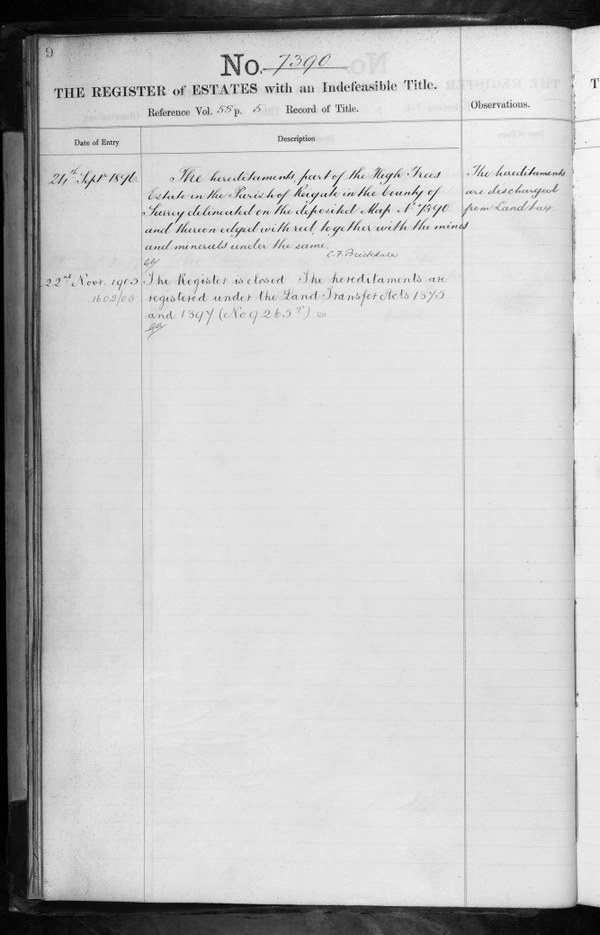 9
No. 7390
THE REGISTER of ESTATES with an Indefeasible Title.
Reference Vol. 55 p. 5 Record of Title.
Observations.
Date of Entry
Description
24th Septr 1896
The hereditaments part of the High Trees
Estate in the Parish of Reigate in the County of
Surrey delineated on the deposited Map No 7390
and thereon edged with red together with the mines
and minerals under the same.
C.F. Brickdale
The hereditaments
are discharged
from Land tax
22nd Novr. 1905
1602/05
The Register is closed The hereditaments are
registered under the Land Transfer Acts 1875
and 1897 (No 9265